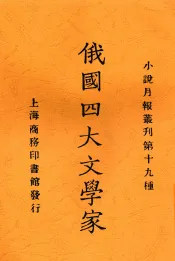 小說月報叢刊第十九種
俄國四大文學家
上海商務印書館發行